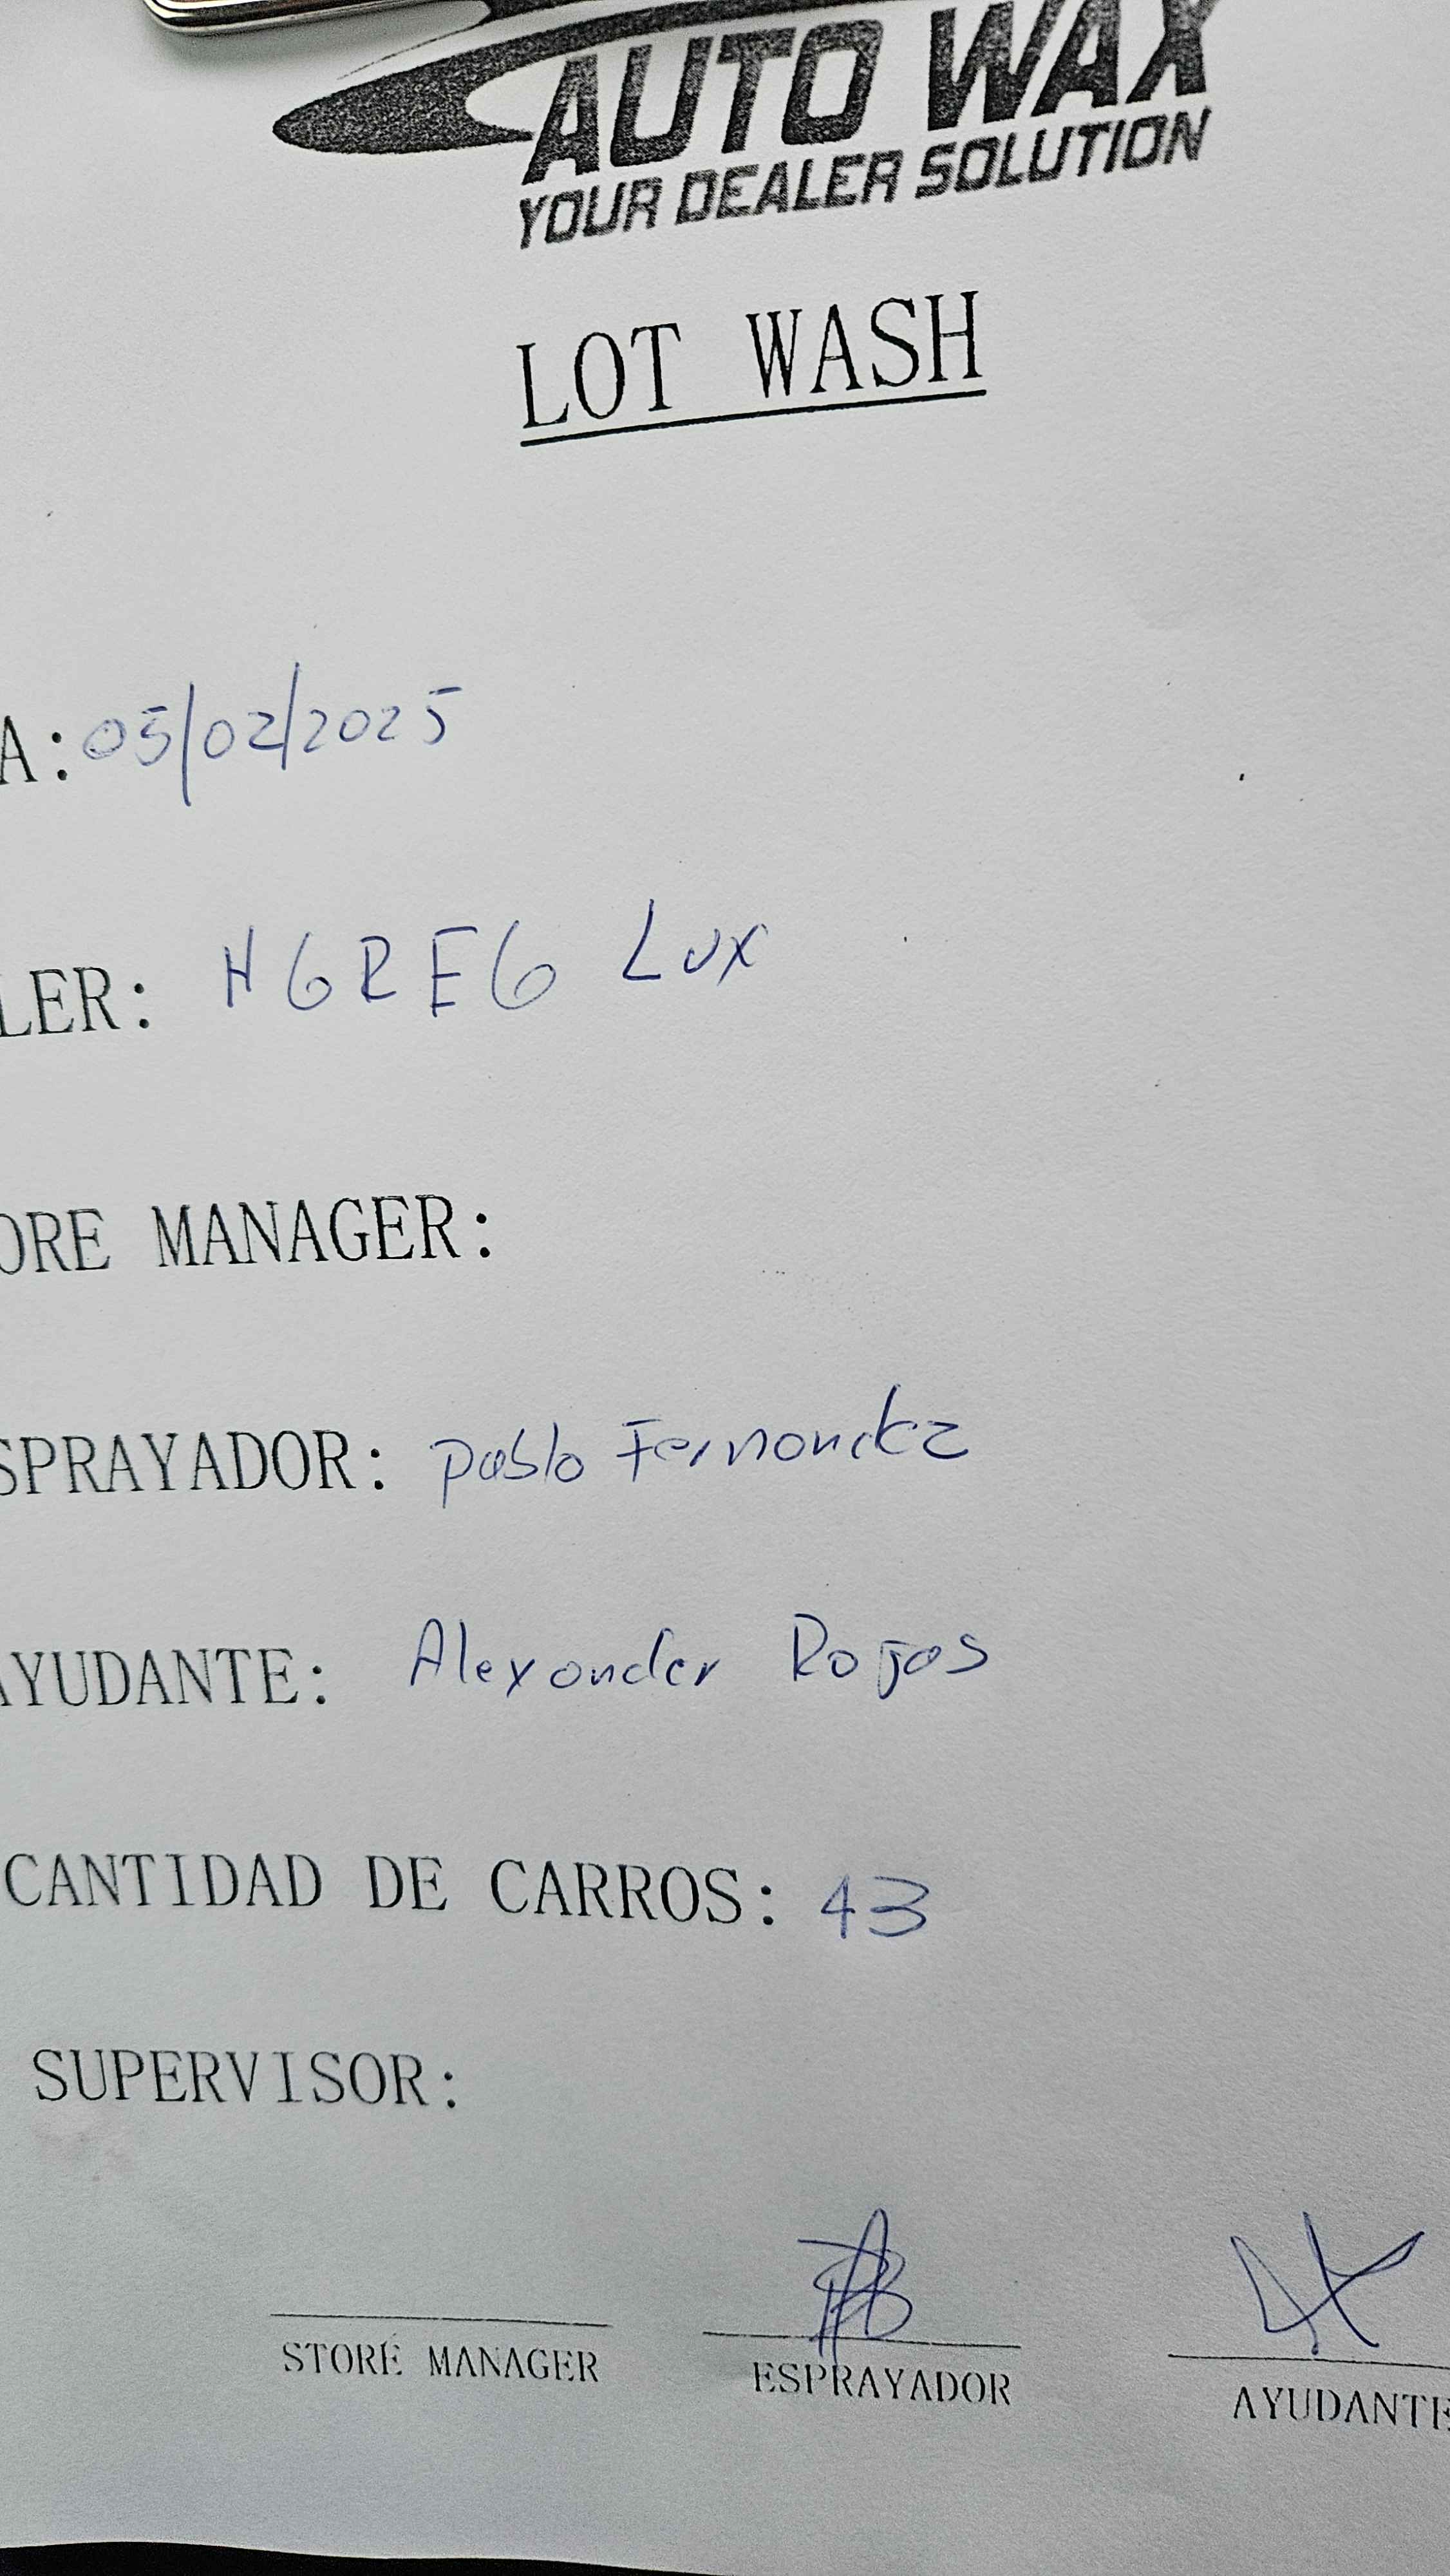 AUTO WAX
YOUR DEALER SOLUTION
LOT WASH
A: 05/02/2025
LER: HGREG Lux
ORE MANAGER:
SPRAYADOR: pablo Fernandez
AYUDANTE: Alexander Rojas
CANTIDAD DE CARROS: 43
SUPERVISOR:
STORE MANAGER ESPRAYADOR AYUDANTE